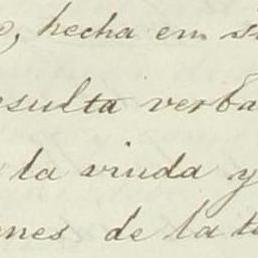 , hecha em
esulta verba
la viuda y
nes de la t